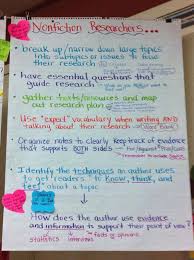 Nonfiction Researchers...
• break up/narrow down large topics
into subtopics or issues to focus
their research
• have essential questions that
guide research
• gather texts/resources and map
out research plan
• Use "expert" vocabulary when writing AND
talking about their research
Word Bank
• Organize notes to clearly keep track of evidence
that supports both sides
• Identify the techniques an author uses
to get readers to know, think, and
feel about a topic
How does the author use evidence
and information to support their point of view?
statistics interviews
facts opinions